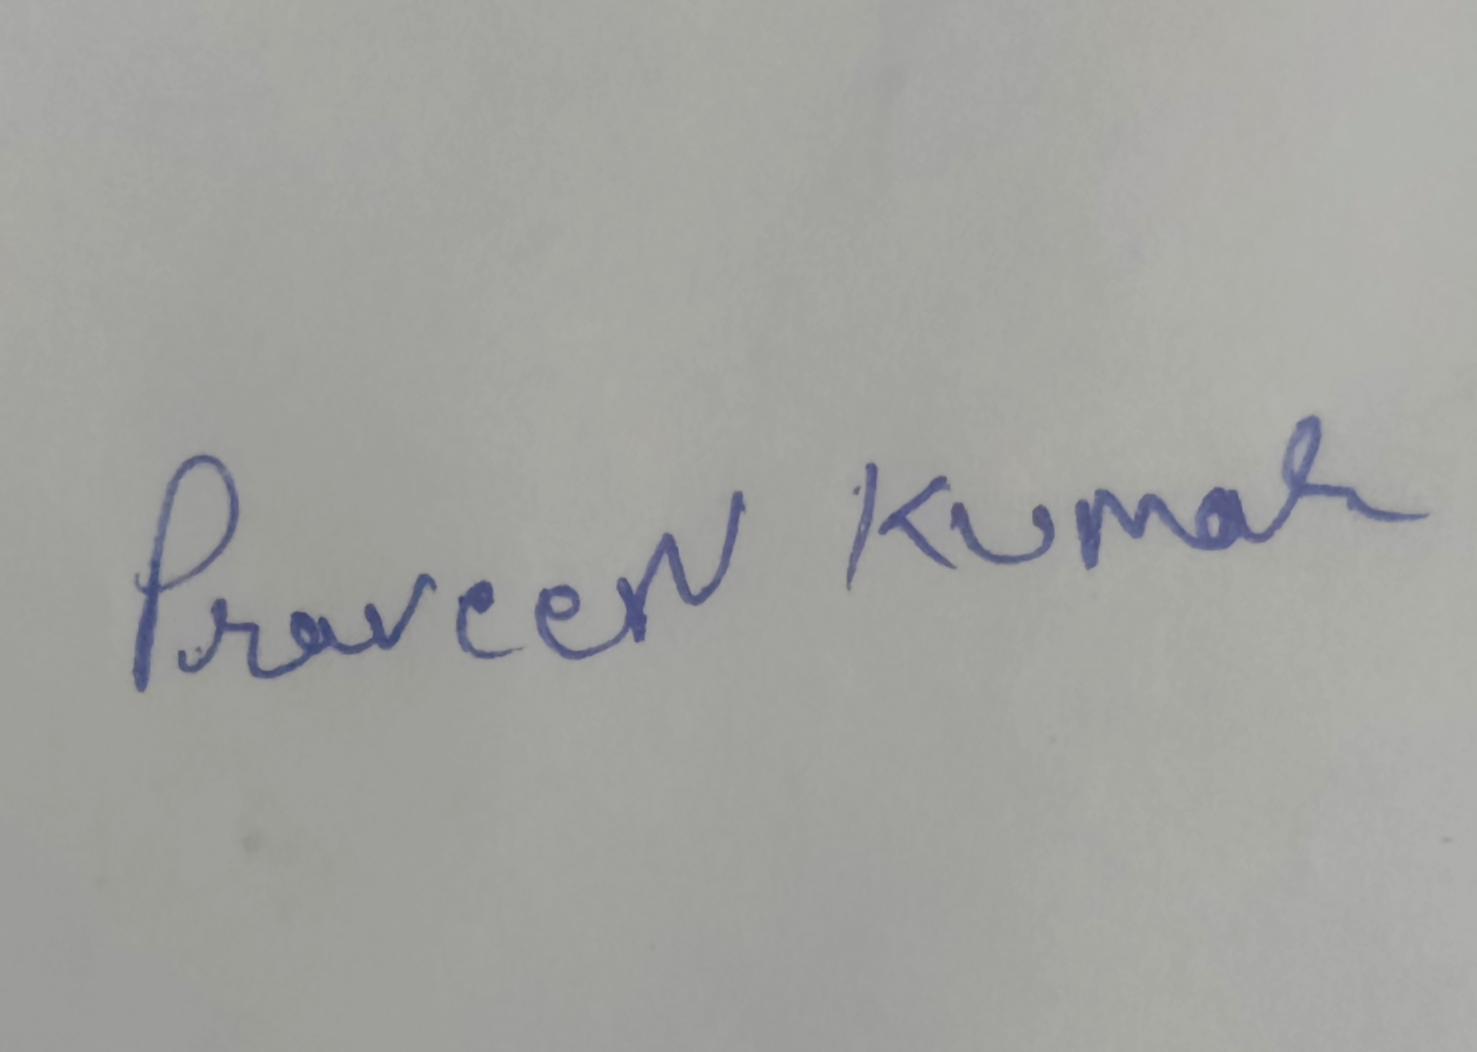 Praveen Kumar